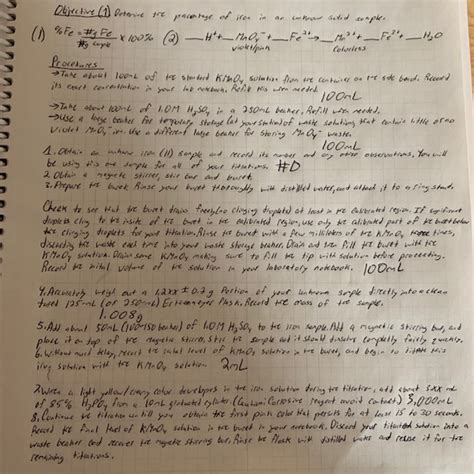 Objective (1) Determine the percentage of iron in an unknown solid sample.
(1) %Fe = #g Fe / #g sample x 100% (2) __H⁺+__MnO₄⁻+__Fe²⁺→__Mn²⁺+__Fe³⁺+__H₂O
violet/pink colorless
Procedures
→Take about 100mL of the standard KMnO₄ solution from the container on the side bench. Record
its exact concentration in your lab notebook. Refill this when needed.
100mL
→Take about 100mL of 1.0M H₂SO₄ in a 250mL beaker. Refill when needed.
→Use a large beaker for temporary storage (at your station) of waste solutions that contain little or no
violet MnO₄⁻ ion. Use a different large beaker for storing MnO₄⁻ waste.
100mL
1. Obtain an unknown iron (II) sample and record its number and any other observations. You will
be using this one sample for all of your titrations. #D
2. Obtain a magnetic stirrer, stir bar and buret.
3. Prepare the buret. Rinse your buret thoroughly with distilled water, and attach it to a ring stand.
Check to see that the buret drains freely (no clinging droplets) at least in the calibrated region. If significant
droplets cling to the inside of the buret in the calibrated region, use only the calibrated part of the buret below
the clinging droplets for your titration. Rinse the buret with a few milliliters of the KMnO₄ three times,
discarding the waste each time into your waste storage beaker. Drain and then fill the buret with the
KMnO₄ solution. Drain some KMnO₄ making sure to fill the tip with solution before proceeding.
Record the initial volume of the solution in your laboratory notebook. 100mL
4. Accurately weigh out a 1.2xx ± 0.2 g portion of your unknown sample directly into a clean
tared 125-mL (or 250-mL) Erlenmeyer flask. Record the mass of the sample.
1.008g
5. Add about 50mL (100-150 beaker) of 1.0M H₂SO₄ to the iron sample. Add a magnetic stirring bar, and
place it on top of the magnetic stirrer. Stir the sample and it should dissolve completely fairly quickly.
6. Without much delay, record the initial level of KMnO₄ solution in the buret, and begin to titrate this
iron solution with the KMnO₄ solution. 2mL
7. When a light yellow/creamy color develops in the iron solution during the titration, add about 3.xx mL
of 85% H₃PO₄ from a 10mL graduated cylinder. (Caution! Corrosive reagent avoid contact) 3.000mL
8. Continue the titration until you obtain the first pink color that persists for at least 15 to 30 seconds.
Record the final level of KMnO₄ solution in the buret in your notebook. Discard your titrated solution into a
waste beaker and recover the magnetic stirring bar. Rinse the flask with distilled water and reuse it for the
remaining titrations.